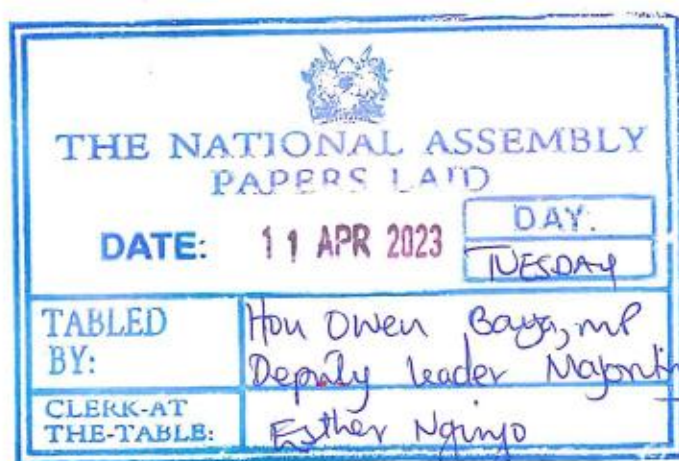 THE NATIONAL ASSEMBLY
PAPERS LAID
DATE: 11 APR 2023
DAY:
TUESDAY
TABLED BY:
Hon Owen Baya, MP
Deputy Leader Majority
CLERK-AT THE-TABLE:
Esther Nginyo